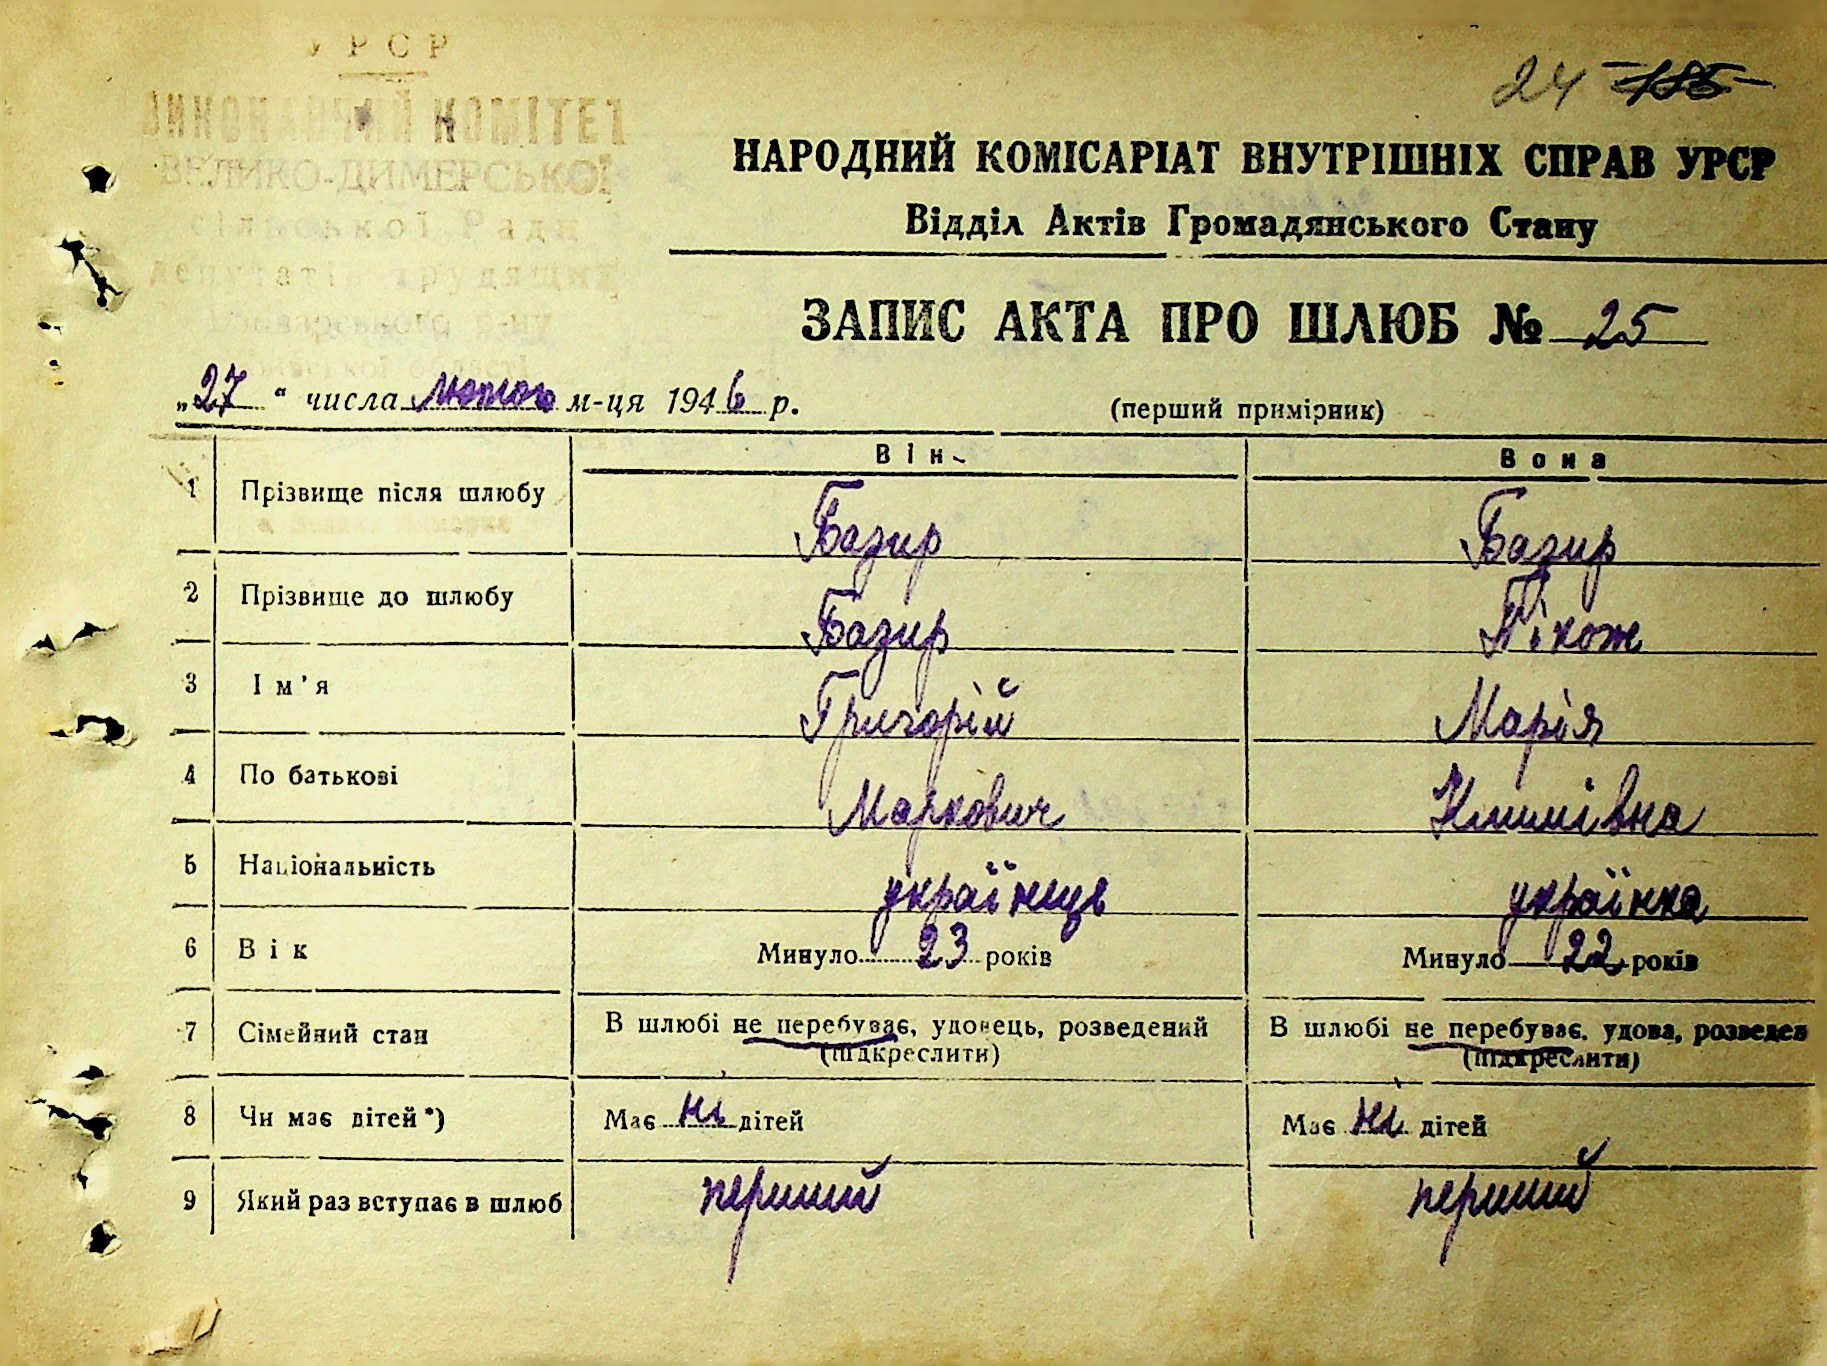 УРСР
ВИКОНАВЧИЙ КОМІТЕТ
ВЕЛИКО-ДИМЕРСЬКОЇ
сільської Ради
депутатів трудящих
області
24 185
НАРОДНИЙ КОМІСАРІАТ ВНУТРІШНІХ СПРАВ УРСР
Відділ Актів Громадянського Стану
ЗАПИС АКТА ПРО ШЛЮБ № 25
„27“ числа Лютого м-ця 1946 р.
(перший примірник)
Він Вона
1 Прізвище після шлюбу Базир Базир
2 Прізвище до шлюбу Базир Пікож
3 Ім'я Григорій Марія
4 По батькові Маркович Климівна
5 Національність українець українка
6 Вік Минуло 23 років Минуло 22 років
7 Сімейний стан В шлюбі не перебуває, удовець, розведений В шлюбі не перебуває, удова, розведен
(підкреслити) (підкреслити)
8 Чи має дітей*) Має ні дітей Має ні дітей
9 Який раз вступає в шлюб перший перший